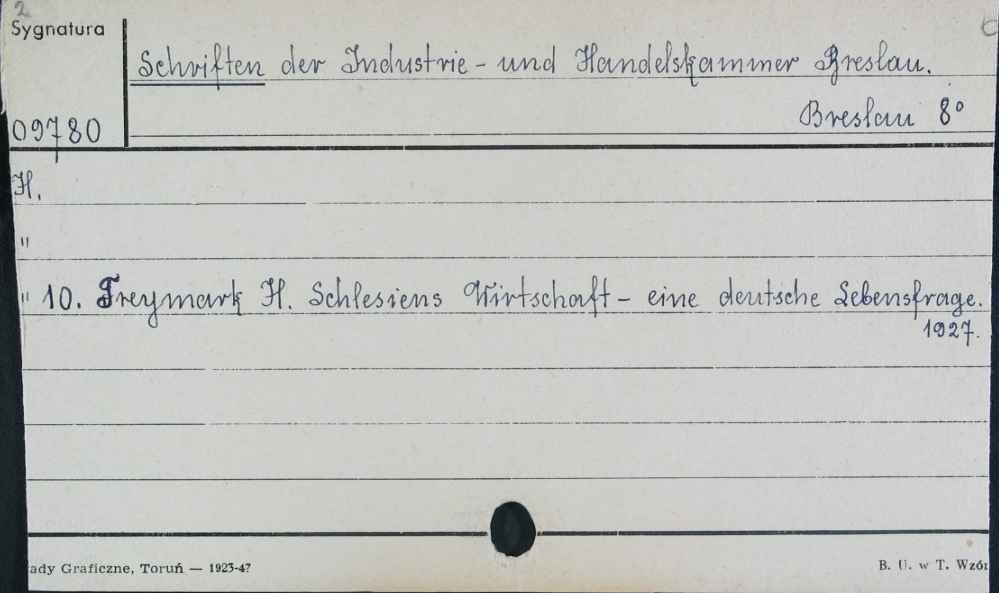 2
Sygnatura
Schriften der Industrie - und Handelskammer Breslau.
Breslau 8°
09780
H.
"
" 10. Freymark H. Schlesiens Wirtschaft - eine deutsche Lebensfrage.
1927.
ady Graficzne, Toruń — 1923-47
B. U. w T. Wzór